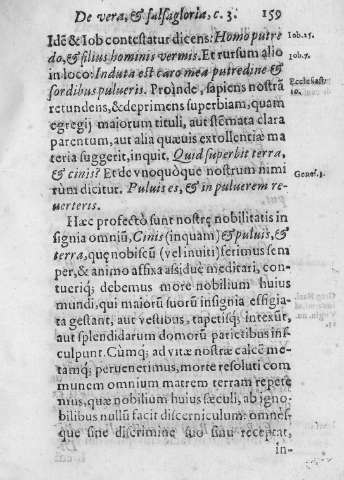 De vera, & falsa gloria, c. 3. 159
Idẽ & Iob contestatur dicens: Homo putre
do, & filius hominis vermis. Et rursum alio
in loco: Induta est caro mea putredine &
sordibus pulueris. Proinde, sapiens nostrã
retundens, & deprimens superbiam, quam
egregij maiorum tituli, aut stẽmata clara
parentum, aut alia quæuis extollentiæ ma
teria suggerit, inquit. Quid superbit terra,
& cinis? Et de vnoquoque nostrum nimi
rum dicitur. Puluis es, & in puluerem re-
uerteris.
Iob. 25.
Iob. 7.
Ecclesiast.
10.
Genes. 3.
Hæc profectò sunt nostrę nobilitatis in
signia omniũ, Cinis (inquam) & puluis, &
terra, quę nobiscũ (vel inuiti) ferimus sem
per, & animo affixa assiduè meditari, con-
tueriq; debemus more nobilium huius
mundi, qui maiorũ suorũ insignia effigia-
ta gestant, aut vestibus, tapetisq; intexũt,
aut splendidarum domorũ parietibus ins
culpunt. Cùmq; ad vitæ nostræ calcẽ me-
tamq; peruenerimus, morte resoluti com
munem omnium matrem terram repete
mus, quæ nobilium huius sæculi, ab igno-
bilibus nullũ facit discerniculum: omnes-
que sine discrimine suo sinu receptat,
in-